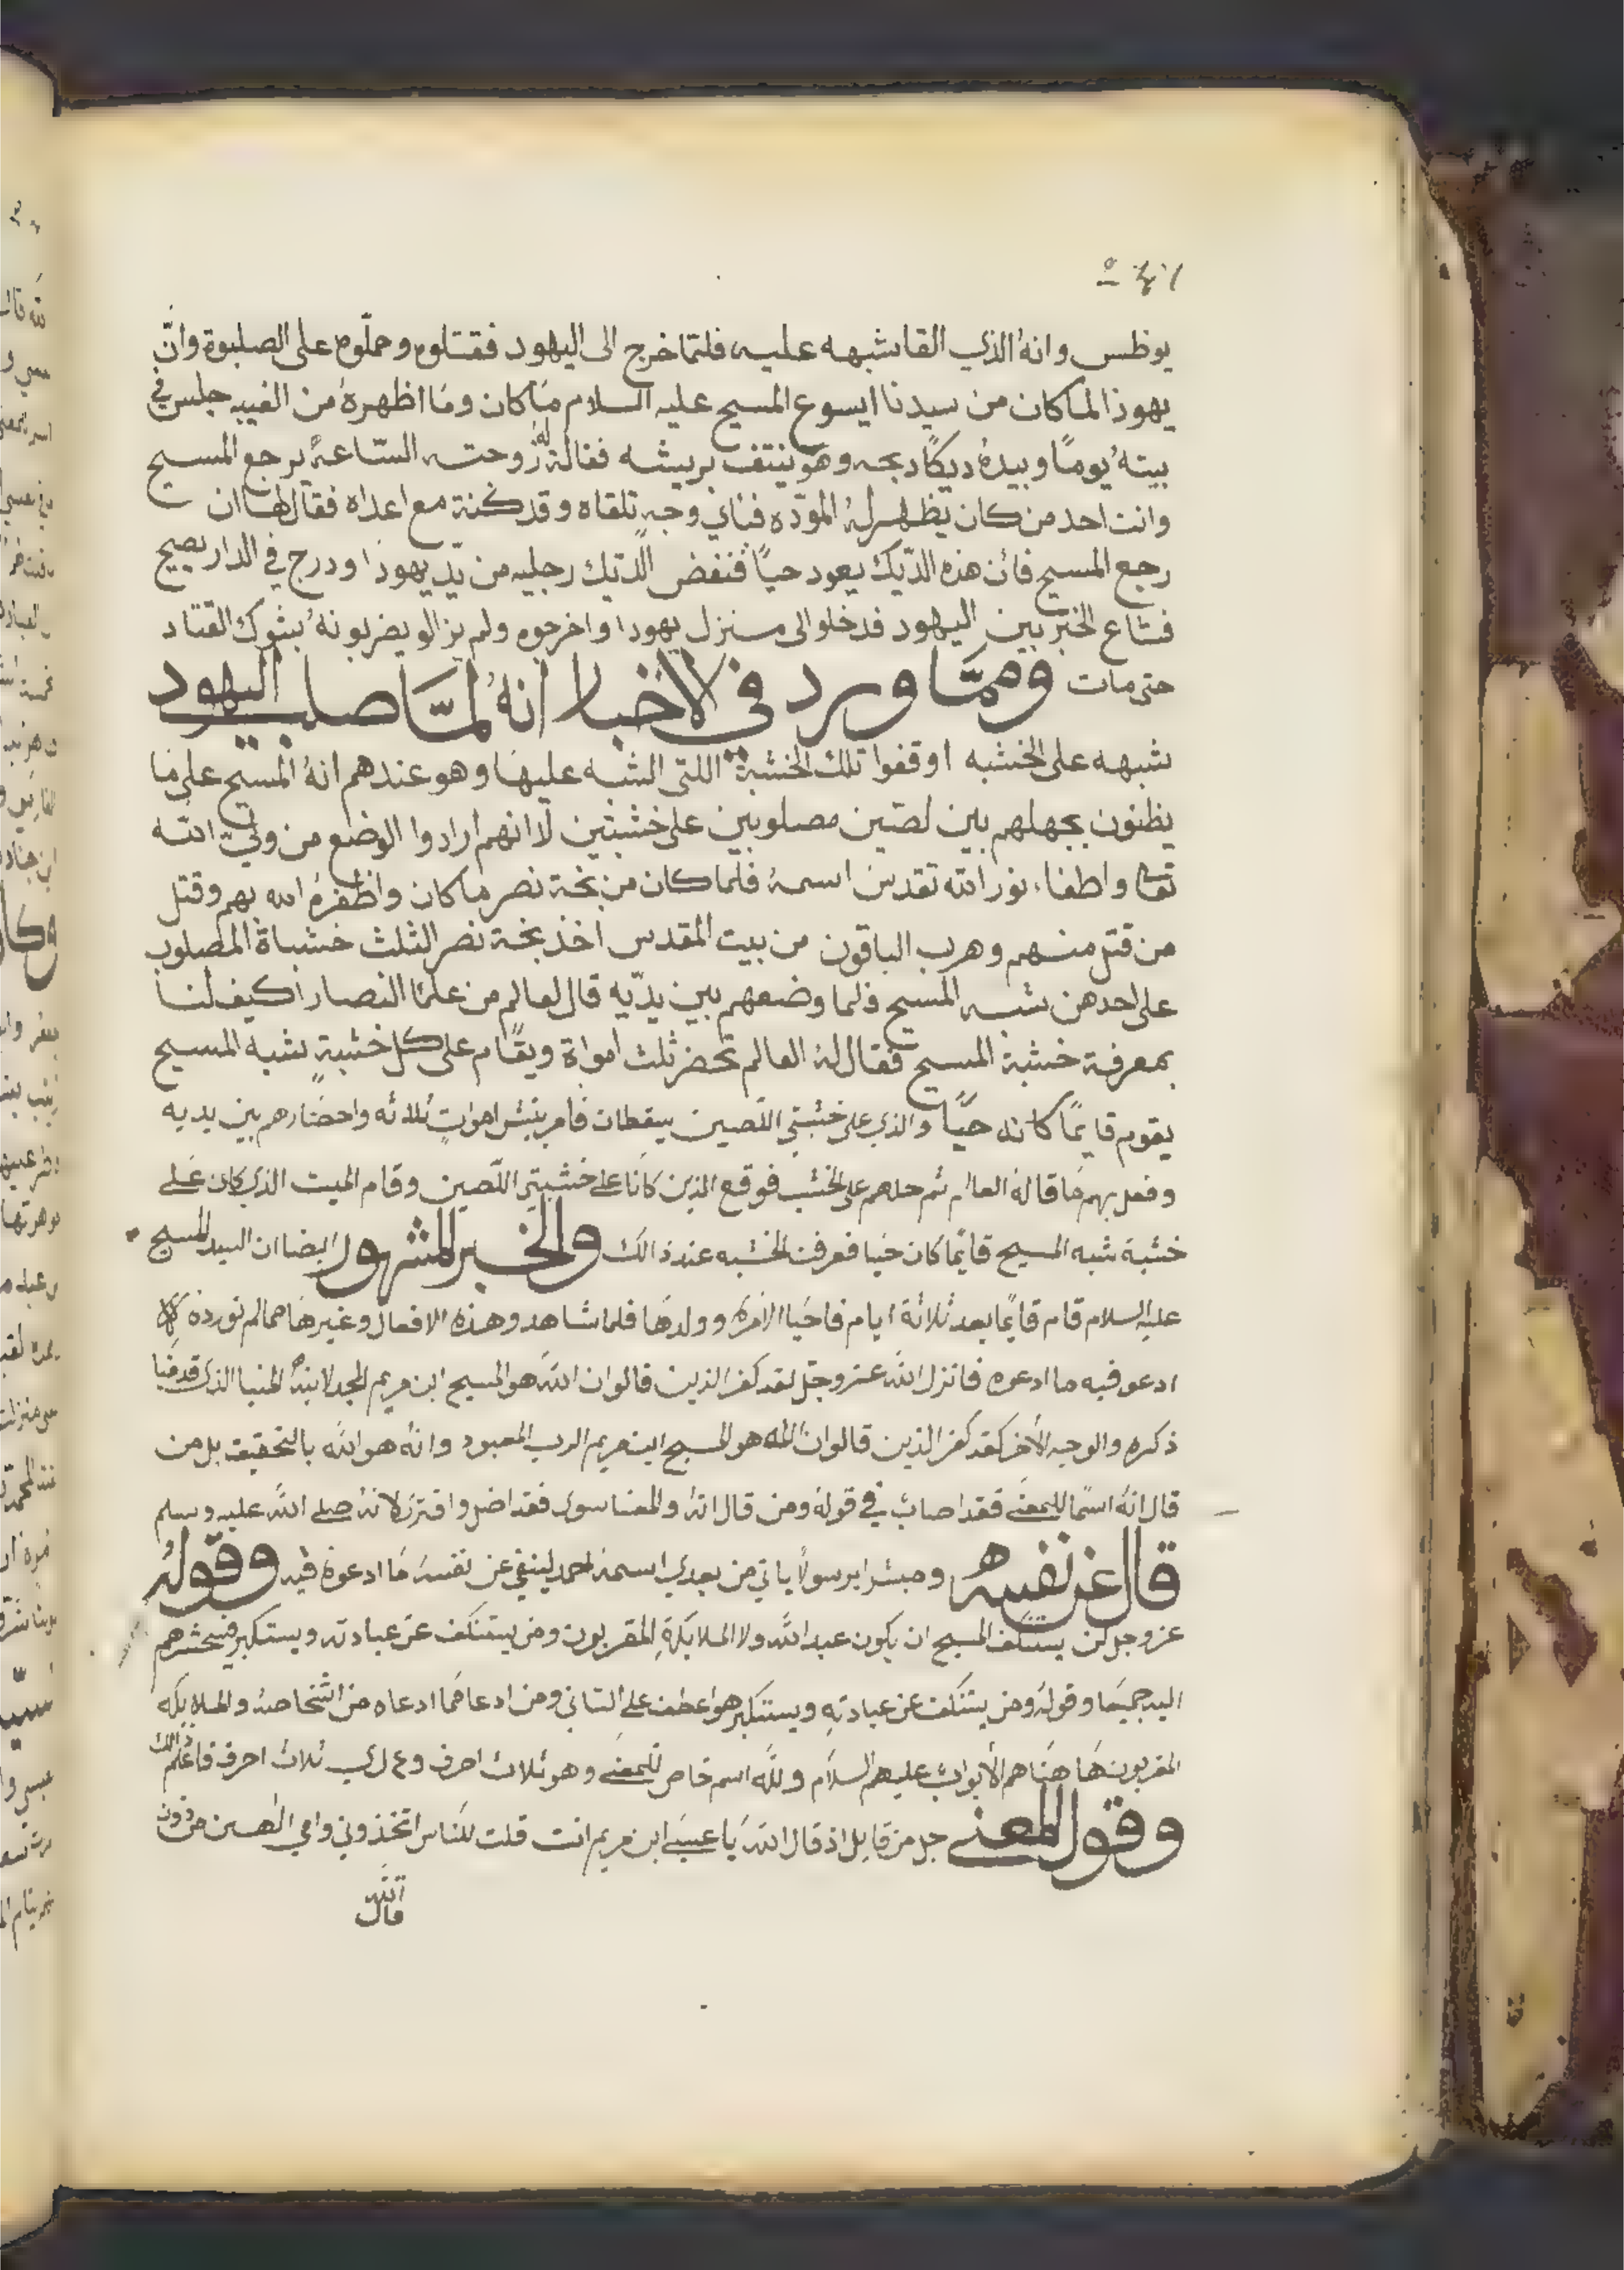 يوظس وانهُ الذي القا شبهه عليه فلمّا خرج الى اليهود فقتلوه وحملّوه على الصلبوة وانّ
يهوذا لما كان من سيدنا ايسوع المسيح عليه السلام مَا كان ومَا اظهرهُ من الغيبه جلس في
بيتهُ يومًا وبيدهُ ديكًا دبحه وهو ينتف بريشه فقالة لهُ زوحته السّاعةً يرجع المسيح
وانت احد من كان يظهر لهُ المودّه فباي وجهٍ تلقاه وقد كنة مع اعداه فقال لها ان
رجع المسيح فأن هذه الدّيك يعود حيًا فنفض الدّيك رجليه من يدّ يهوذا ودرج في الدار يصيح
فشاع الخبر بين اليهود فدخلوا الى منزل يهودا واخرجوه ولم يزالو يضربونهُ بشوك القتاد
حتى مات وممّا ورد في الاخبار انهُ لمّا صلب اليهود
شبهه على الخشبه اوقفوا تلك الخشبة اللتي الشبه عليهَا وهو عندهم انهُ المسيح على مَا
يظنون بجهلهم بين لصّين مصلوبين على خشبتين لانهم ارادوا الوضع من وليّ الله
تعا واطفاء نور الله تقدس اسمهُ فلما كان من بخة نصر ما كان واظفرهُ الله بهم وقتل
من قتل منهم وهرب الباقون من بيت المقدس اخذ بخة نصر الثلث خشباة المصلوب
على احدهن شبه المسيح فلما وضعهم بين يدّيه قال لعالم من علمَا النصارا كيف لنا
بمعرفة خشبة المسيح فقال لهُ العالم تحضر ثلث امواة ويقّام على كل خشبةٍ شبه المسيح
يقوم قايمًا كانه حيًا والذي على خشبتي اللّصين يسقطان فامر بنبش امواتٍ ثلاثه واحضارهم بين يديه
وفعل بهم مَا قالهُ العالم ثم حملهم على الخشب فوقع الذين كانَا على خشبتي اللّصين وقام الميت الذي كان عَلى
خشبة شبه المسيح قائمًا كان حيَا فعرفت الخشبه عند ذالك والخبر المشهور ايضا ان السيد المسيح
عليه السلام قام قايمًا بعد ثلاثة ايام فاحيَا الامره وولدهَا فلما شاهدو هذه الافعال وغيرهَا ممالم نوردهُ
ادعو فيه ما ادعوه فانزل اللهُ عز وجل لقد كفر الذين قالوا ان الله هو المسيح ابن مريم الذي قدمنا
ذكره والوجه الأخر لقد كفر الذين قالوا ان الله هو المسيح ابن مريم الرب المعبود وانه هو الله بالتحقيق بل من
قال انهُ اسمًا للمعنَى فقد اصاب في قولهُ ومن قال انهُ والمعنا سوى فقد اضل وافترى لانهُ صلى اللهُ عليه وسلم
قال عن نفسه ومبشرا برسولاً ياتي من بعدي اسمهُ احمد لينفي عن نفسهُ مَا ادعوهُ فيه وقولهُ
عز وجل لن يستنكف المسيح ان يكون عبد اللهُ ولا الملايكةِ المقربون ومن يستنكف عن عبادته ويستكبر فسيحشرهم
اليه جميعَا وقولهُ ومن يستنكف عن عبادتهِ ويستكبر هو اعطف على الثاني ومن ادعا فما ادعاه من اشخاصهُ والملايكه
المقربون هَا هنَا هم الأبواب عليهم السلام ولله اسم خاص للمعنَى وهو ثلاث احرف و ع ل ي ثلاث احرف فاعلم ذالك
وقول المعنى جل من قايل اذ قال اللهُ يَا عيسَى ابن مريم انت قلت للنَاس اتخذوني وامي الهين من دون
اللهِ
قال